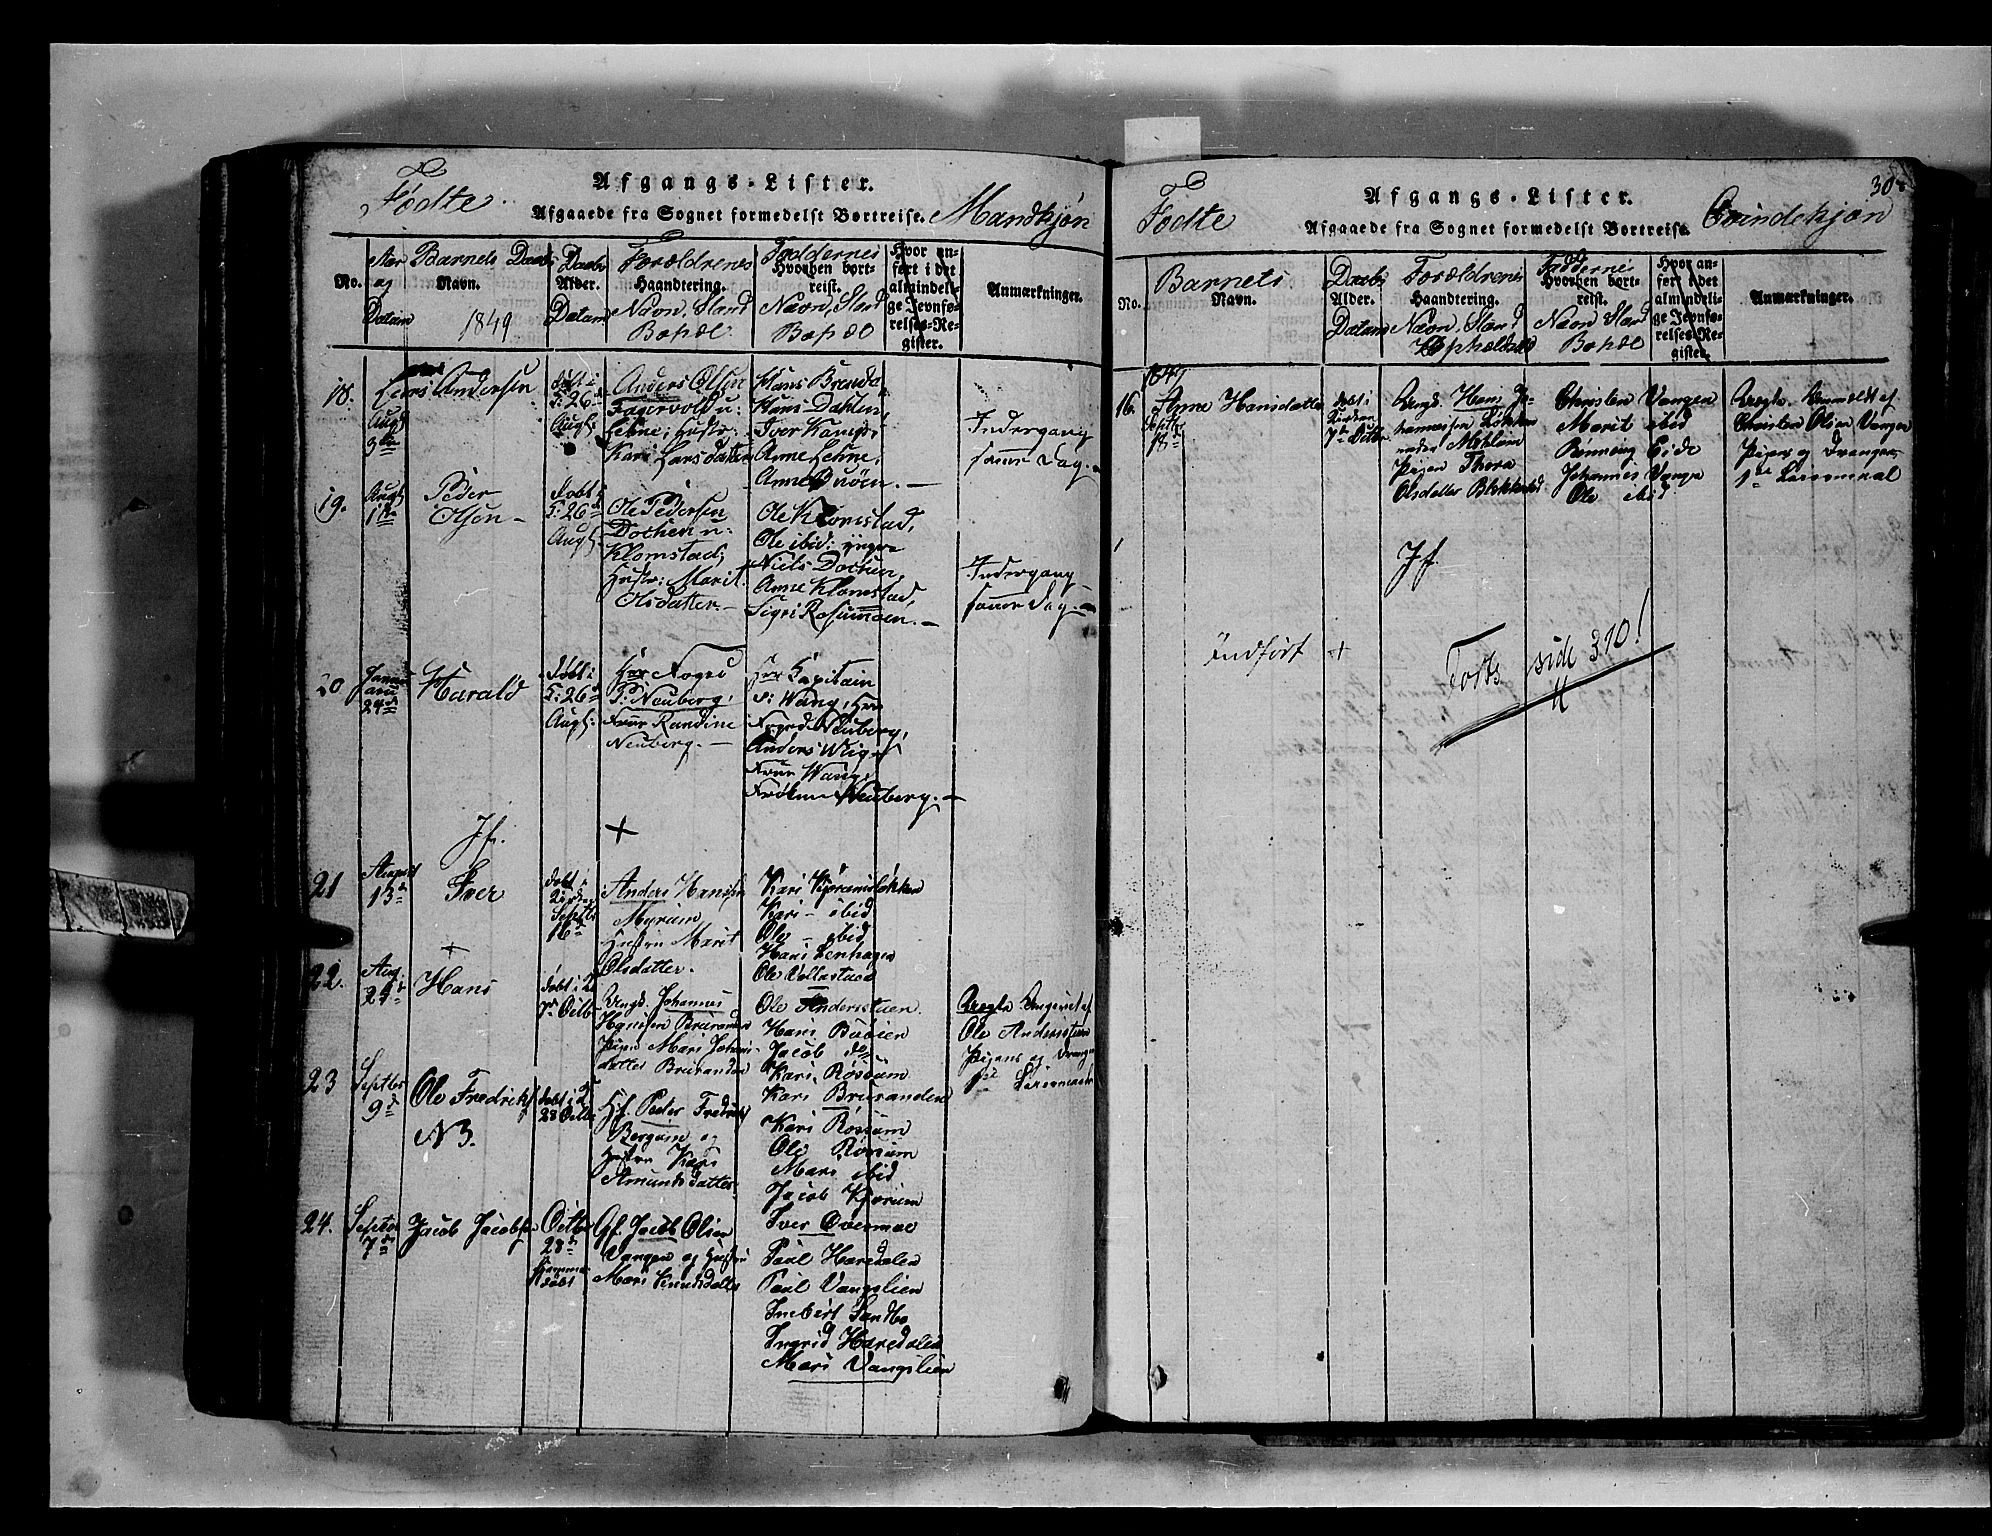 Fødte
Afgangs-Lister.
Afgaaede fra Sognet formedelst Bortreise.
Mandkjøn
No.
Aar og Datum
Barnets Daabs
Navn.
1849
Daabs
Alder.
Datum
Forældrenes
Haandtering.
Navn, Stand
Bopæl
Faddernes
Hvorhen bort-
reist.
Navn, Stand
Bopæl
Hvor an-
ført i det
almindeli-
ge Jevnfø-
relses-Re-
gister.
Anmærkninger.
18.
Augs
Lars Andersen
døbt i
26
Augs:
Anders Olsen
Fagervold u:
Lehne; Hustr:
Kari Larsdatter
Hans
Hans Dahlen,
Iver Kamps,
Anne Lehne,
Anne
Indergang
samme Dag.
19.
Augs
Peder
Olsen
døbt
26
Augs:
Ole Pedersen
Dochen u:
Klomstad;
Hustr: Marit
Olsdatter.
Ole Klomstad,
Ole ibid: yngre
Niels Dochen,
Anne Klomstad,
Sigri Rosummoen.
Indergang
samme Dag.
20
Janu-
arii
24de
Harald
døbt
26
Augs:
Hrr Foged
P. Neuberg,
Frue Randine
Neuberg.
Hrr Capitain
S: Wang, Hrr
Foged Neuberg,
Anders Wiig
Frue Wang,
Frøken Neuberg.
Jf.
+
21
August
13de
Iver
døbt i
Kirken
Septbr
16de
Anders Hansen
Myrum
Hustru Marit
Olsdatter.
Kari Kjøremsløkken
Kari ibid
Ole ibid
Hans Lenhagen
Ole Vollastuen
+
22.
Aug.
Hans
døbt i K
7de Octb
Ungk. Johannes
Hansen Bruranden
Pigen Mari Johans-
datter Bruranden
Ole Andersstuen.
Hans
Jacob do
Kari Røssum
Kari Bruranden
Uægte Angivet af
Ole Andersstuen
Pigens og
1ste Leiermaal
23
Septbr
9de
Ole Fredrik
N3.
døbt i K
28 Octb
Gf. Peder Fredriks
Bergum og
Hustru Kari
Amundsdatter
Kari Røssum
Ole Røssum
Mari ibid
Jacob Kjørum
Iver
24.
Septbr
7de
Jacob Jacobsen
Octbr
28de
hjemme-
døbt
Gf. Jacob Olsen
Vangen og Hustru
Mari Knudsdatter
Paul Haredalen
Paul Vangslien
Imbert Sandbo
Ingrid Haredalen
Mari Vangslien
Fødte
Afgangs-Lister.
Afgaaede fra Sognet formedelst Bortreise.
Qvindekjøn
No.
Barnets
Navn.
Daabs
Alder.
Datum
Forældrenes
Haandtering.
Navn, Stand
Opholdsted
Faddernes
Hvorhen bort-
reist.
Navn Stand
Bopæl
Hvor an-
ført i det
almindeli-
ge Jevnfø-
relses-Re-
gister.
Anmærkninger.
1849
16.
Septbr
18de
Anne Hansdatter
døbt i
Kirken
7de Octbr
Ungk. Hans Jo-
hannessen Løkken
under
Pigen Thora
Olsdatter
Christen Vangen
Marit ibid
Rønnoug Eide
Johannes Vangen
Ole ibid.
Uægte Anmeldt af
Christen Olsen Vangen
Piges og Drengens
1ste Leiermaal
Jf.
indført +
Forts side 310!